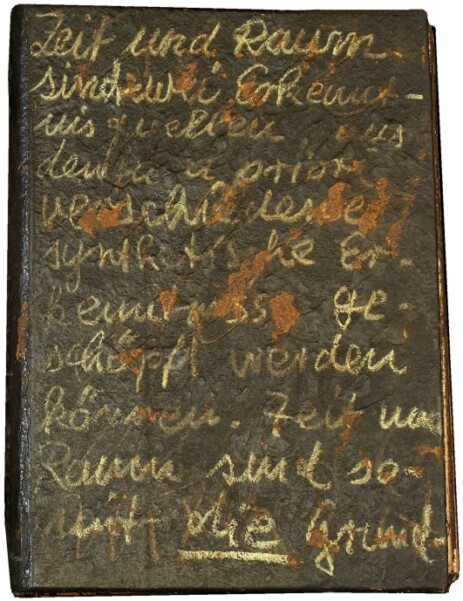 Zeit und Raum
sind zwei Erkennt-
nisquellen aus
denen a priori
verschiedene
synthetische Er-
kenntnisse ge-
schöpft werden
können. Zeit und
Raum sind so-
mit die Grund-